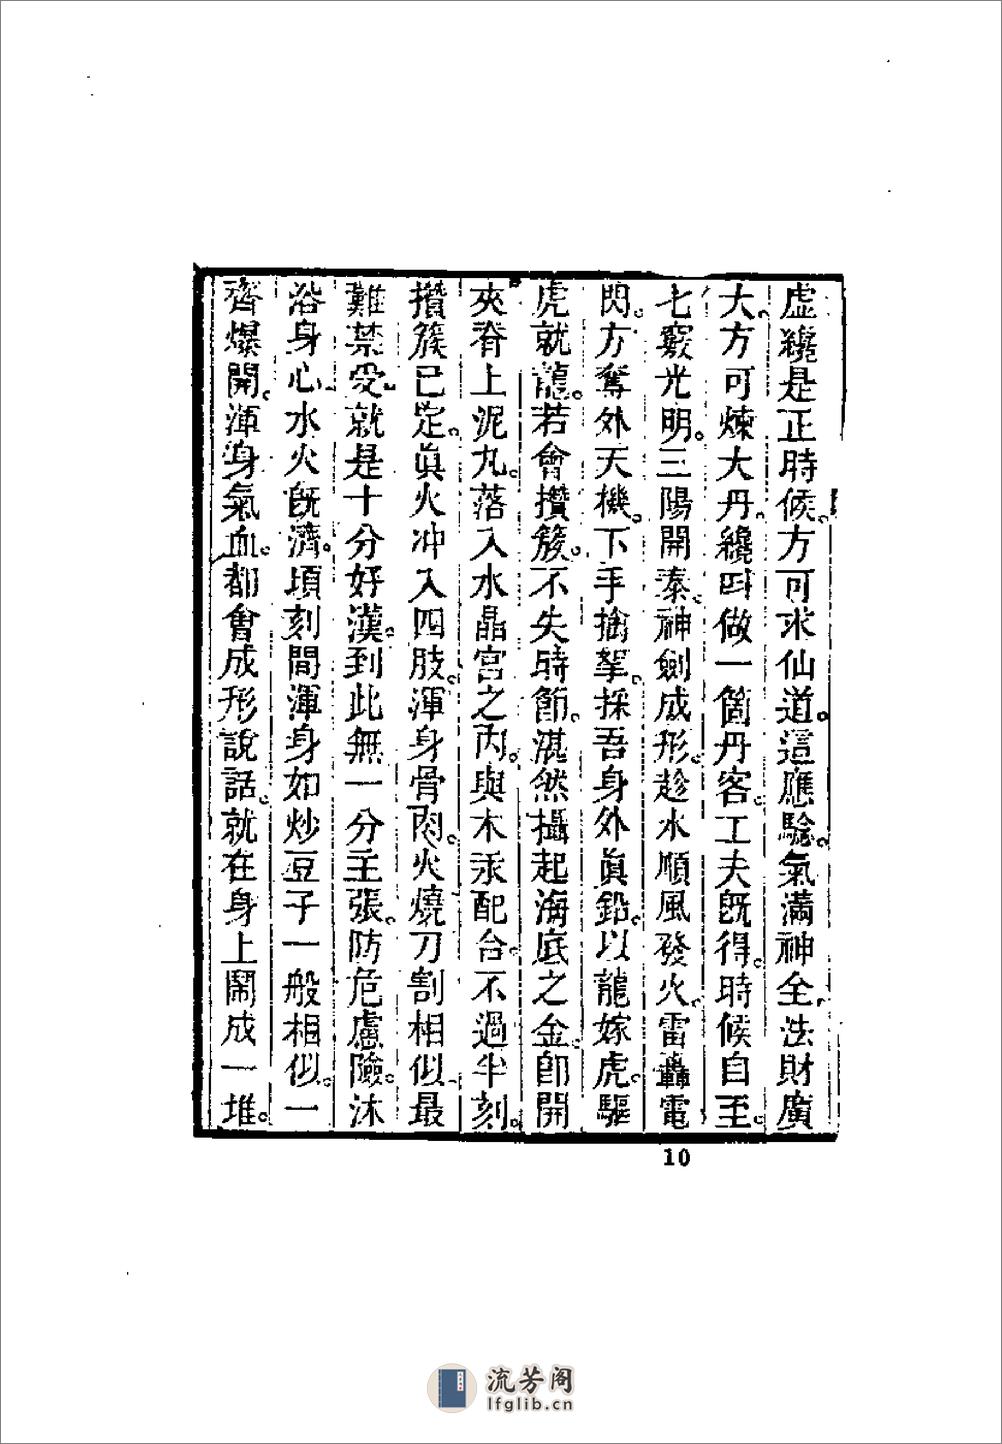 虛纔是正時候。方可求仙道。這應驗。氣滿神全。法財廣
大。方可煉大丹。纔叫做一箇丹客。工夫旣得。時候自至。
七竅光明。三陽開泰。神劍成形。趁水順風發火。雷轟電
閃。方奪外天機。下手擒拏。採吾身外眞鉛。以龍嫁虎。驅
虎就龍。若會攢簇。不失時節。湛然攝起海底之金。卽開
夾脊上泥丸。落入水晶宮之內。與木汞配合。不過半刻。
攢簇已定。眞火冲入四肢。渾身骨肉。火燒刀割相似。最
難禁受。就是十分好漢。到此無一分主張。防危慮險。沐
浴身心。水火旣濟。頃刻間渾身如炒豆子一般相似。一
齊爆開。渾身氣血。都會成形說話。就在身上鬧成一堆。
10
流芳阁
lfglib.cn